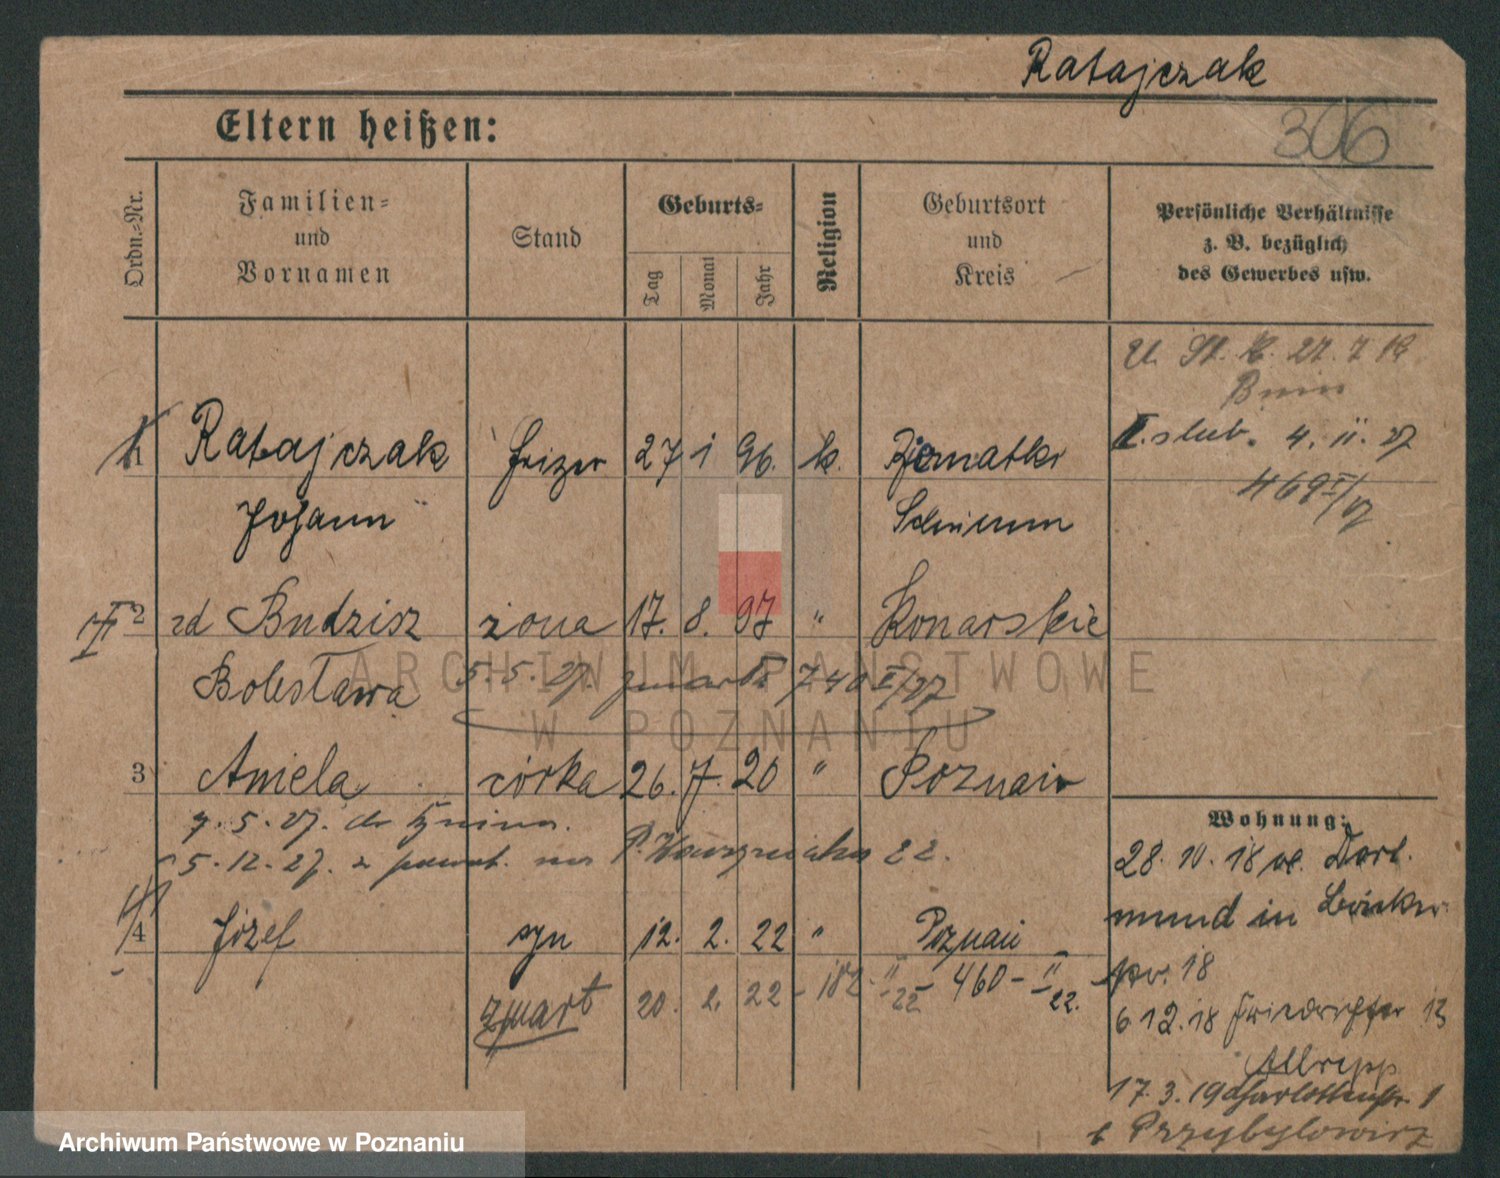 Ratajczak
Eltern heißen:
306
Ordn.-Nr.
Familien-
und
Vornamen
Stand
Geburts-
Tag
Monat
Jahr
Religion
Geburtsort
und
Kreis
Persönliche Verhältnisse
z. B. bezüglich
des Gewerbes usw.
27. 7 18
Bnin
II. slub. 4. 11. 27
469 II/27
1 Ratajczak frizer 27 1 96. k.
Johann Schrimm
II 2 zd Budzisz żona 17. 8. 97 " Konarskie
Bolesława 5. 5. 27. zmarła 740 II/27
3 Aniela córka 26. 7. 20 " Poznań
7. 5. 27. do Bnina.
5. 12. 27. z powrot. na P. Wawrzyniaka 22.
4 Józef syn 12. 2. 22 " Poznań
zmarł 20. 2. 22 - 182 - II 22 - 460 - II 22.
Wohnung:
28. 10. 18 Dort-
mund in
18
6 12. 18 13
17. 3. 19 Charlottenstr. 1
b Przybylowicz
ARCHIWUM PAŃSTWOWE
W POZNANIU
Archiwum Państwowe w Poznaniu